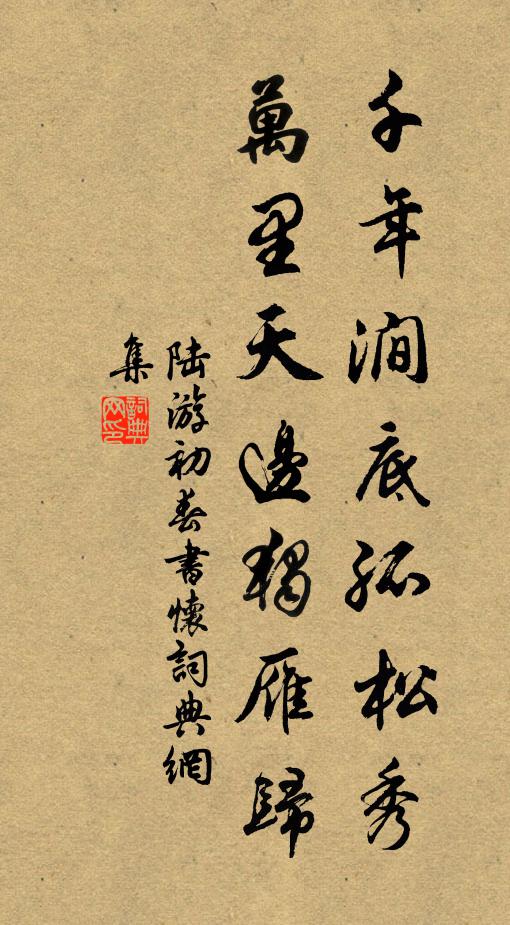 千年澗底孤松秀
萬里天邊獨雁歸
陆游初春書懷詞典網
集
詞典
网印